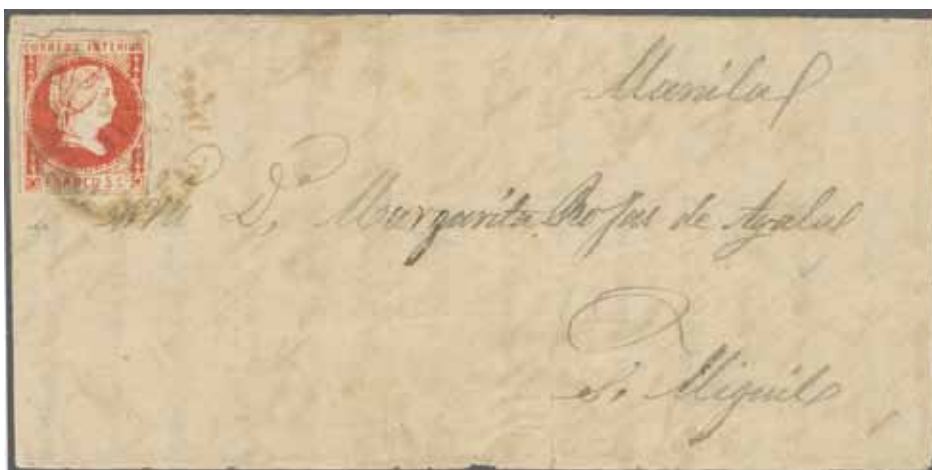 CORREOS INTERIOR
FRANCO 5 C
Manila
D.ª Margarita Rojas de Ayala
S. Miguel